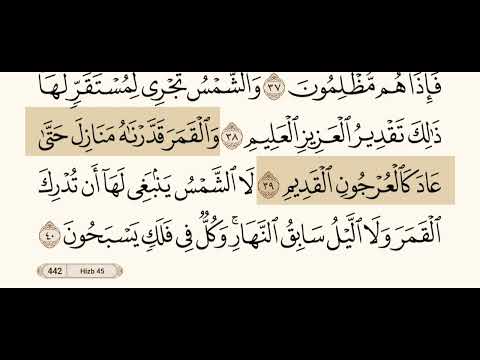 فَإِذَا هُم مُّظْلِمُونَ ٣٧ وَٱلشَّمْسُ تَجْرِى لِمُسْتَقَرٍّ لَّهَا
ذَٰلِكَ تَقْدِيرُ ٱلْعَزِيزِ ٱلْعَلِيمِ ٣٨ وَٱلْقَمَرَ قَدَّرْنَـٰهُ مَنَازِلَ حَتَّىٰ
عَادَ كَٱلْعُرْجُونِ ٱلْقَدِيمِ ٣٩ لَا ٱلشَّمْسُ يَنۢبَغِى لَهَآ أَن تُدْرِكَ
ٱلْقَمَرَ وَلَا ٱلَّيْلُ سَابِقُ ٱلنَّهَارِ ۚ وَكُلٌّ فِى فَلَكٍ يَسْبَحُونَ ٤٠
442 Hizb 45